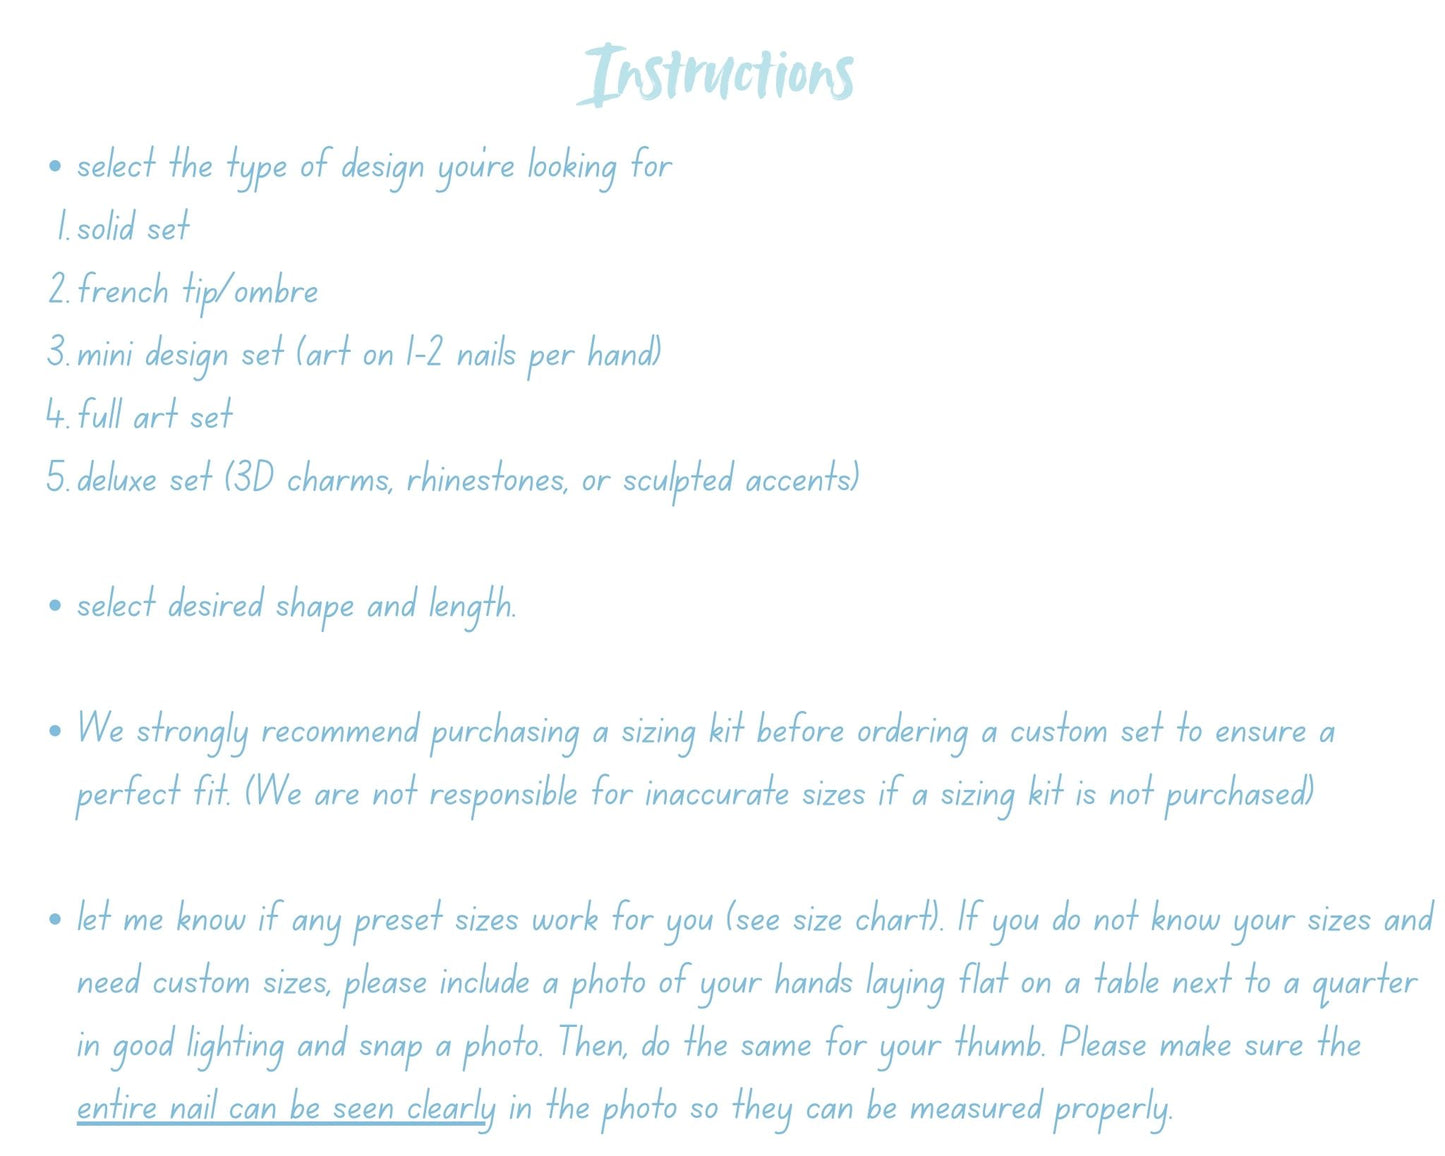 Instructions
• select the type of design you're looking for
1. solid set
2. french tip/ombre
3. mini design set (art on 1-2 nails per hand)
4. full art set
5. deluxe set (3D charms, rhinestones, or sculpted accents)
• select desired shape and length.
• We strongly recommend purchasing a sizing kit before ordering a custom set to ensure a
perfect fit. (We are not responsible for inaccurate sizes if a sizing kit is not purchased)
• let me know if any preset sizes work for you (see size chart). If you do not know your sizes and
need custom sizes, please include a photo of your hands laying flat on a table next to a quarter
in good lighting and snap a photo. Then, do the same for your thumb. Please make sure the
entire nail can be seen clearly in the photo so they can be measured properly.